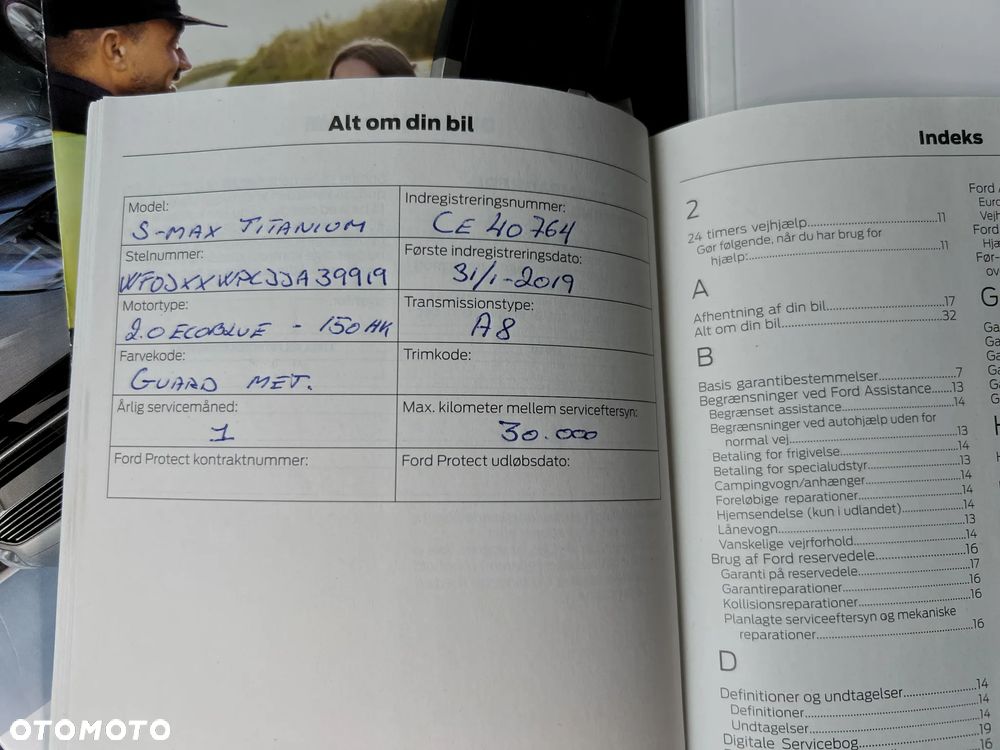 Alt om din bil
Model:
S-MAX TITANIUM
Indregistreringsnummer:
CE 40764
Stelnummer:
WF0JXXWPCJJA39919
Første indregistreringsdato:
31/1-2019
Motortype:
2.0 ECOBLUE - 150 HK
Transmissionstype:
A8
Farvekode:
GUARD MET.
Trimkode:
Årlig servicemåned:
1
Max. kilometer mellem serviceftersyn:
30.000
Ford Protect kontraktnummer:
Ford Protect udløbsdato:
Indeks
2
24 timers vejhjælp..........11
Gør følgende, når du har brug for
hjælp:..........11
A
Afhentning af din bil..........17
Alt om din bil..........32
B
Basis garantibestemmelser..........7
Begrænsninger ved Ford Assistance..........13
Begrænset assistance..........14
Begrænsninger ved autohjælp uden for
normal vej..........13
Betaling for frigivelse..........14
Betaling for specialudstyr..........13
Campingvogn/anhænger..........14
Foreløbige reparationer..........14
Hjemsendelse (kun i udlandet)..........14
Lånevogn..........13
Vanskelige vejrforhold..........14
Brug af Ford reservedele..........16
Garanti på reservedele..........17
Garantireparationer..........16
Kollisionsreparationer..........16
Planlagte serviceeftersyn og mekaniske
reparationer..........16
D
Definitioner og undtagelser..........14
Definitioner..........14
Undtagelser..........14
Digitale Servicebog..........19
16
OTOMOTO